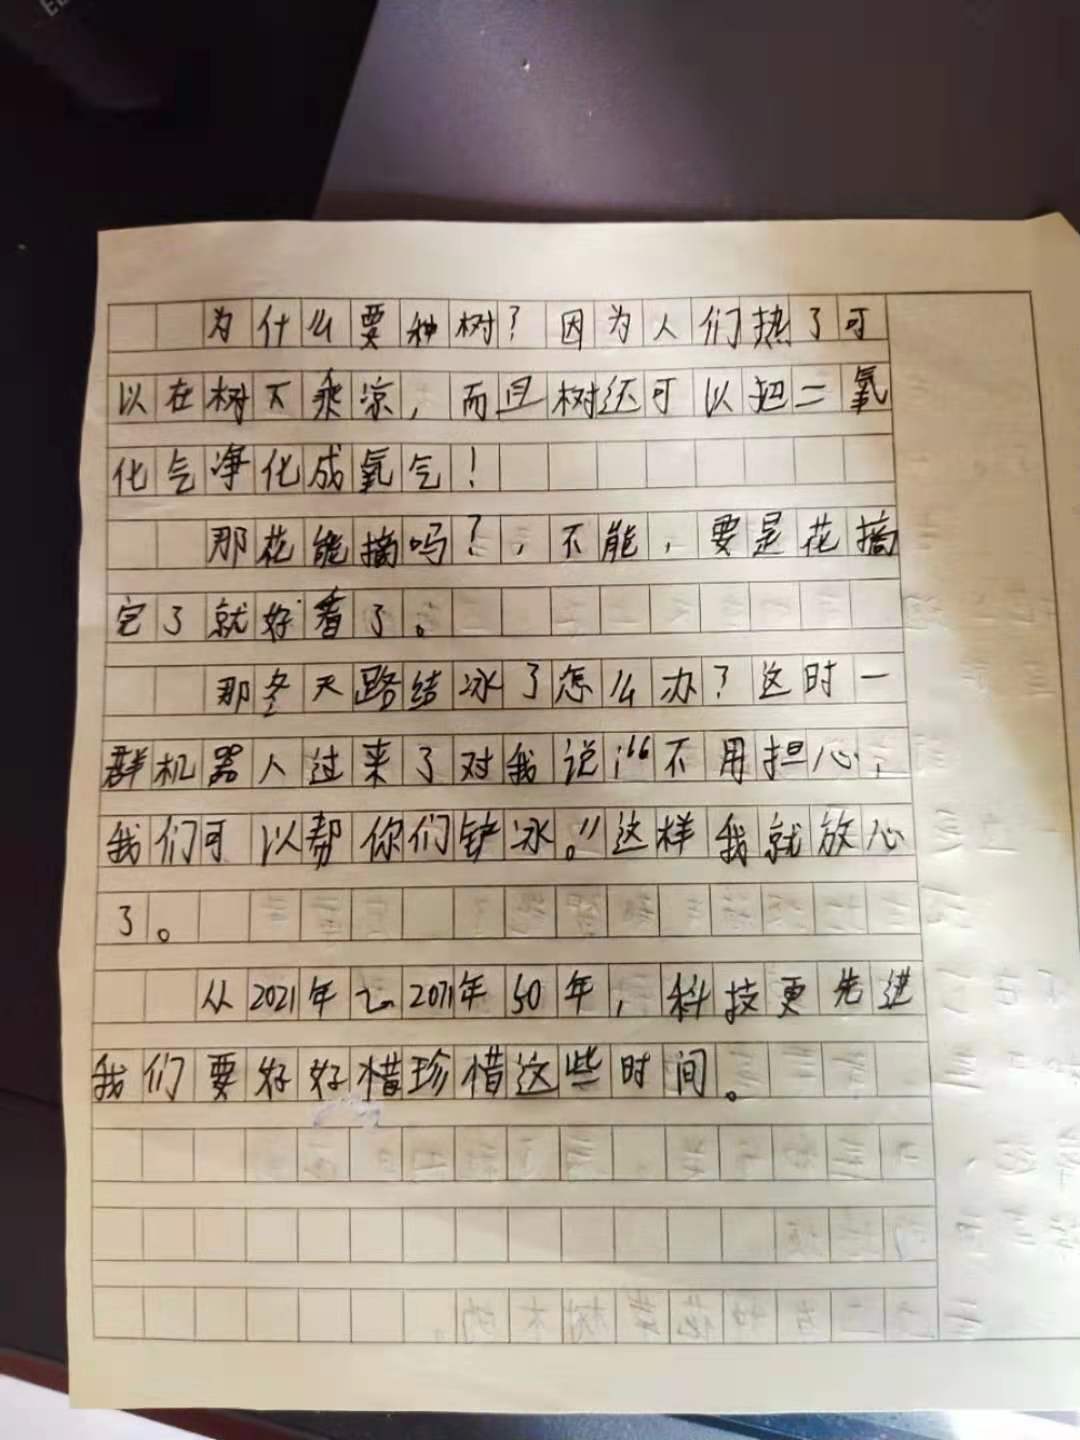 为什么要种树？因为人们热了可
以在树下乘凉，而且树还可以把二氧
化气净化成氧气！
那花能摘吗？，不能，要是花摘
完了就好看了。
那冬天路结冰了怎么办？这时一
群机器人过来了对我说：“不用担心，
我们可以帮你们铲冰。”这样我就放心
了。
从2021年～2071年50年，科技更先进
我们要好好惜珍惜这些时间。